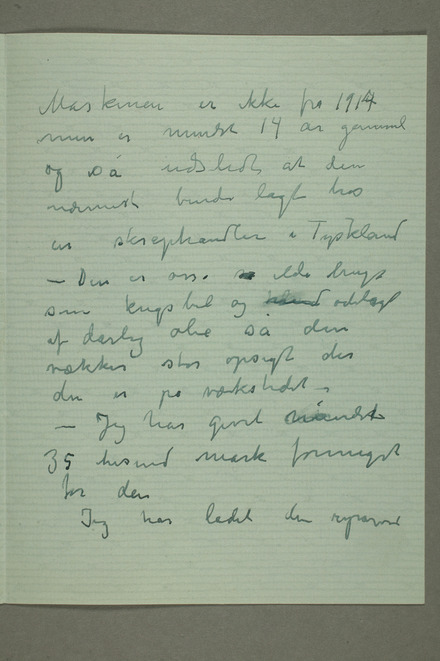 Maskinen er ikke fra 1914
men er mindst 14 år gammel
og så udslidt at den
nærmest burde lagt hos
en skrephandler i Tyskland
– Den er oss. så ilde brugt
som krigsbil og ødelagt
af dårlig olie så den
vækker stor opsigt der
den er på værkstedet –
– Jeg har givet mindst
35 tusind mark formeget
for den
Jeg har ladet den reparere